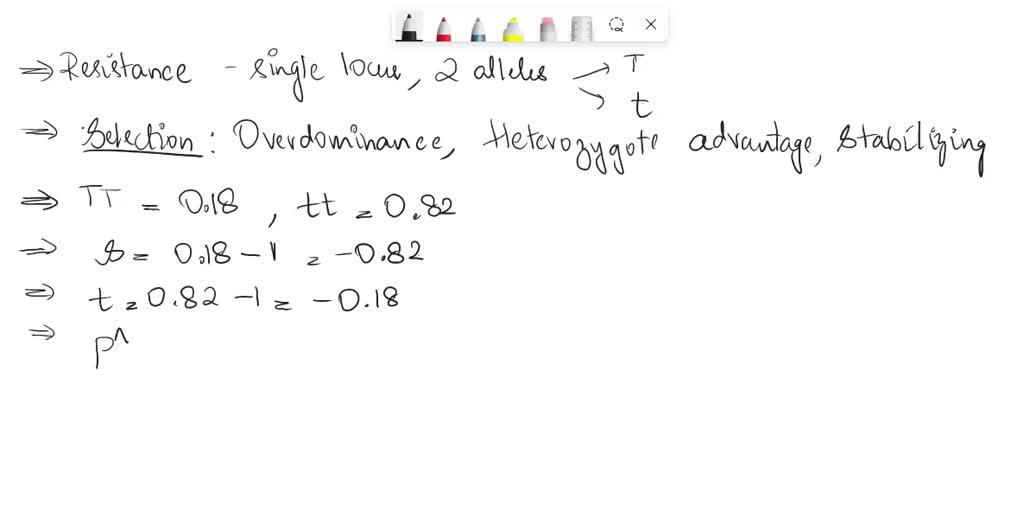 ⇒ Resistance - single locus, 2 alleles → T
→ t
⇒ Selection: Overdominance, Heterozygote advantage, Stabilizing
⇒ TT = 0.18, tt = 0.82
⇒ s = 0.18 - 1 = -0.82
⇒ t = 0.82 - 1 = -0.18
⇒ p^